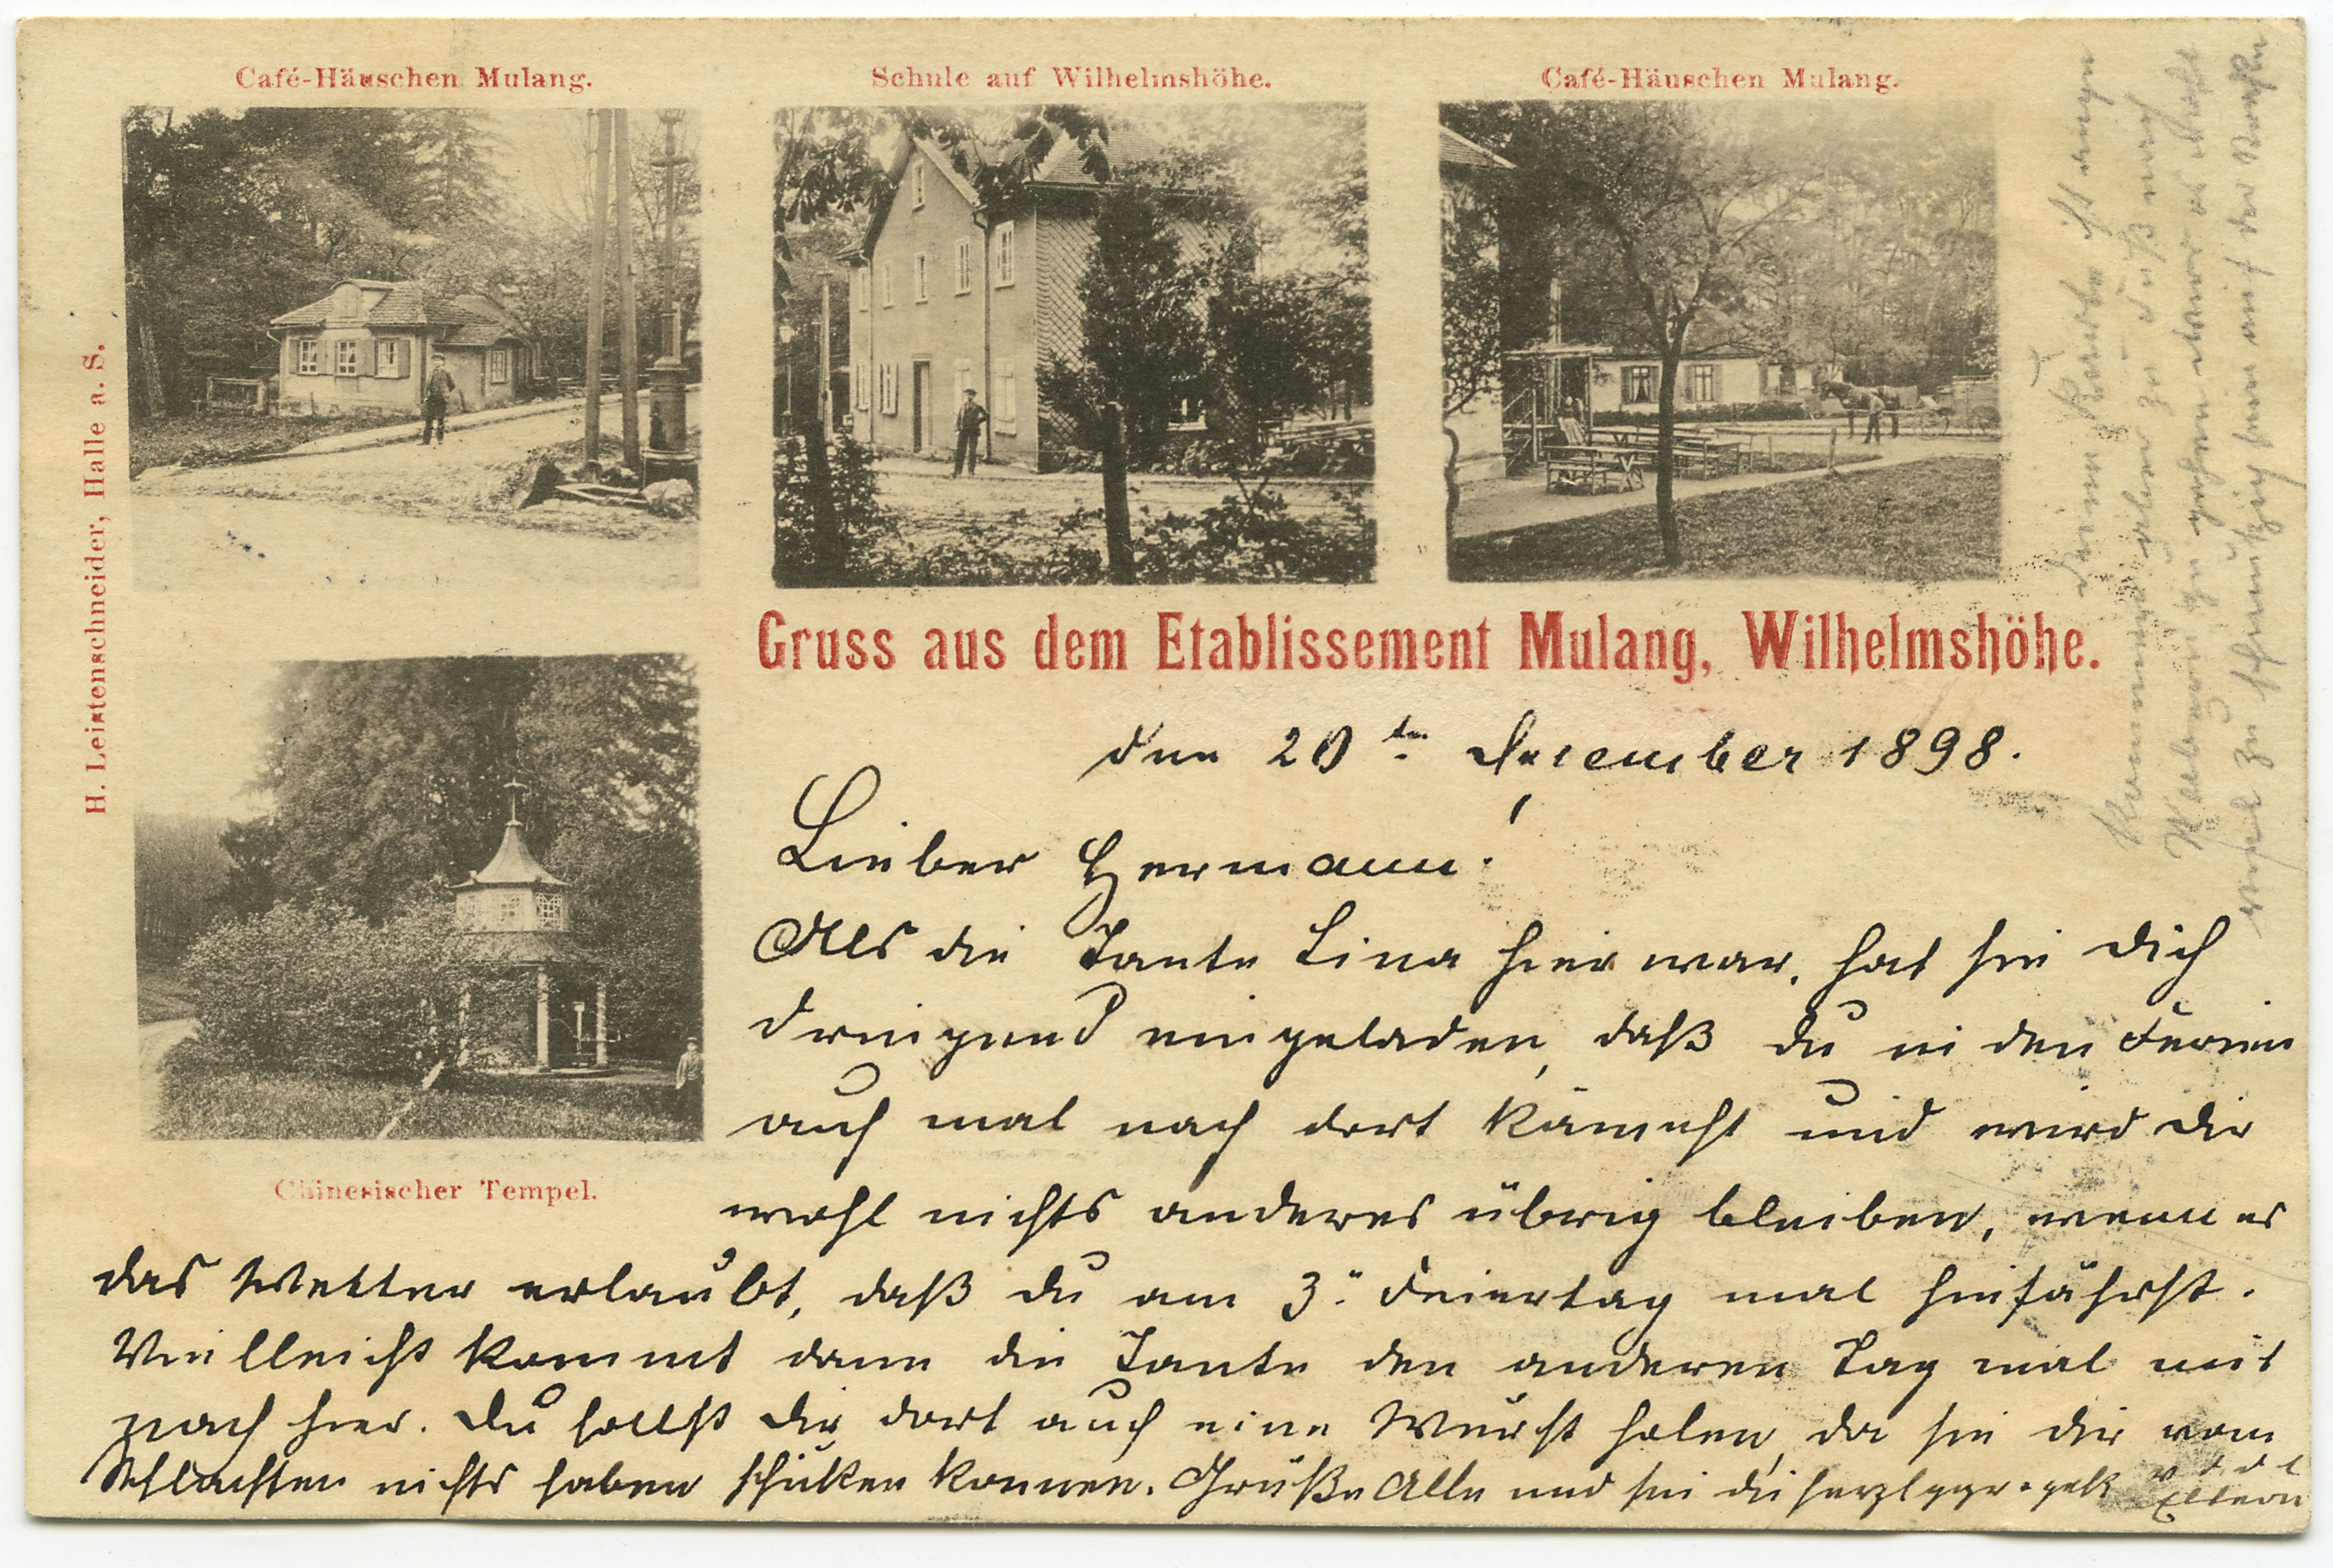 Café-Häuschen Mulang.
Schule auf Wilhelmshöhe.
Café-Häuschen Mulang.
H. Leistenschneider, Halle a. S.
Gruss aus dem Etablissement Mulang, Wilhelmshöhe.
Chinesischer Tempel.
den 20ten Dezember 1898.
Lieber Hermann!
Als die Tante Lina hier war, hat sie Dich
dringend eingeladen, daß Du in den Ferien
auch mal nach dort kämest und wird Dir
wohl nichts anderes übrig bleiben, wenn es
das Wetter erlaubt, daß Du am 3. Feiertag mal hinfährst.
Vielleicht kommt dann die Tante den anderen Tag mal mit
nach hier. Du sollst Dir dort auch eine Wurst holen, da sie Dir vom
Schlachten nichts haben schicken können. Grüße Alle und sei Du herzl. gegr. v. d. d. l. Eltern
Deine Karte ist angekommen
aber zu Fuß nach
zu gehen wäre
zu schmutzig sein auf der